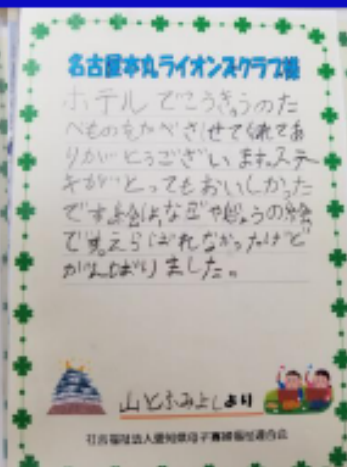 名古屋本丸ライオンズクラブ様
ホテルでこうきゅうのた
べものをたべさせてくれてあ
りがとうございます。ステー
キがとってもおいしかった
です。絵は、なごやじょうの絵
です。えらばれなかったけど
がんばりました。
より
社会福祉法人愛知県母子寡婦福祉連合会